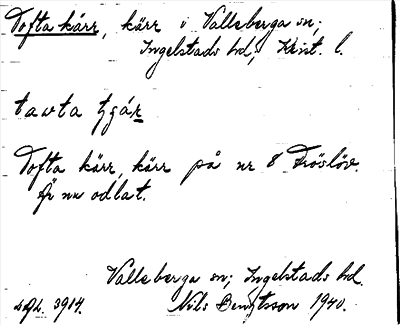 Tofta kärr, kärr i Valleberga sn;
Ingelstads hd; Krist. l.
tawta tzár
Tofta kärr, kärr på nr 8 Fröslöv.
Är nu odlat.
Valleberga sn; Ingelstads hd.
Nils Bengtsson 1940.
3914.